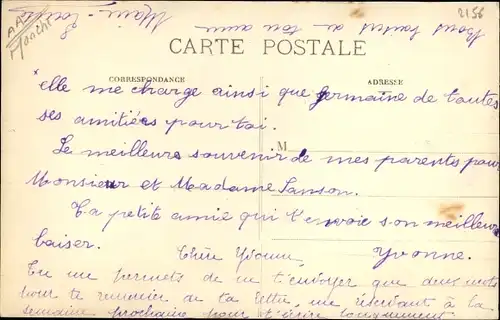 2156
CARTE POSTALE
CORRESPONDANCE
ADRESSE
M
elle me charge ainsi que Germaine de toutes
ses amitiées pour toi.
Le meilleure souvenir de mes parents pour
Monsieur et Madame Sanson.
Ta petite amie qui t'envoie son meilleur
baiser.
Yvonne.
Chère Yvonne,
Tu me permets de ne t'envoyer que deux mots
pour te remercier de ta lettre, me réservant à la
semaine prochaine pour t'écrire longuement